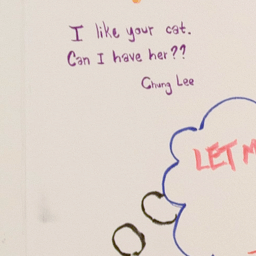 I like your cat.
Can I have her??
Chung Lee
LET M